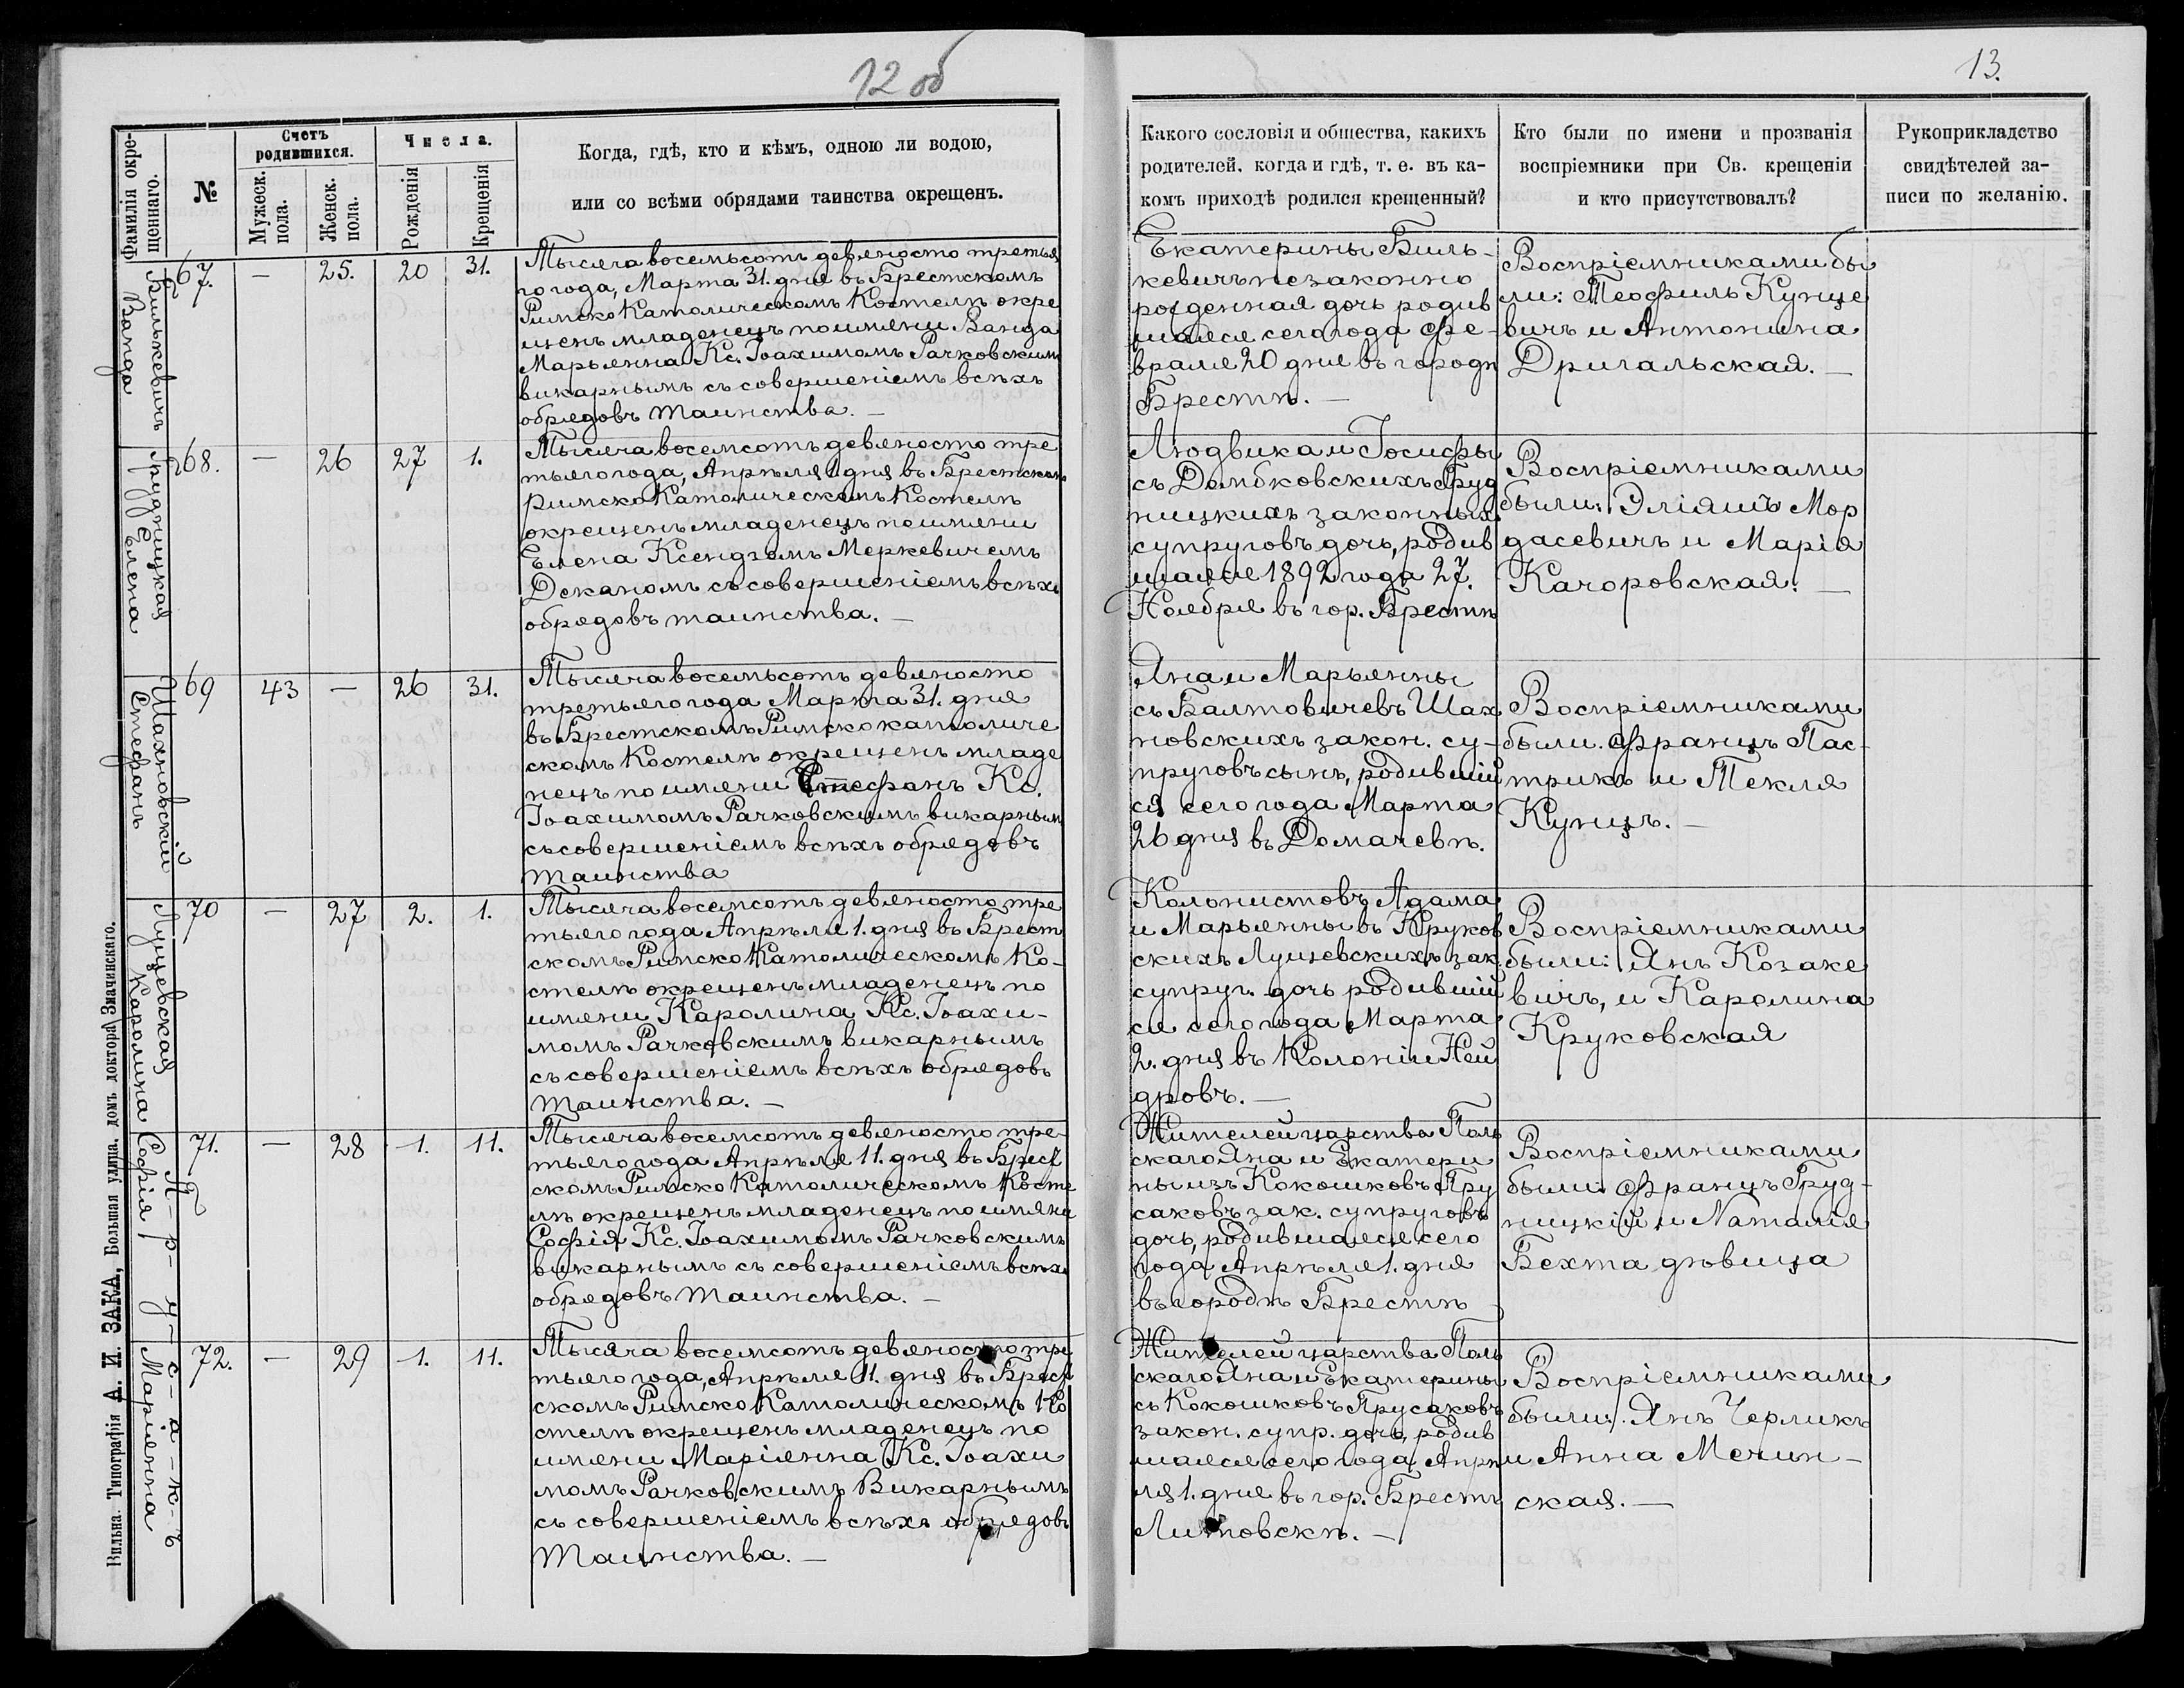 12 об
13.
Фамилія окре-
щеннаго.
№
Счетъ
родившихся.
Мужеск.
пола.
Женск.
пола.
Числа.
Рожденія
Крещенія
Когда, гдѣ, кто и кѣмъ, одною ли водою,
или со всѣми обрядами таинства окрещенъ.
Какого сословія и общества, какихъ
родителей, когда и гдѣ, т. е. въ ка-
комъ приходѣ родился крещенный?
Кто были по имени и прозванія
воспріемники при Св. крещеніи
и кто присутствовалъ?
Рукоприкладство
свидѣтелей за-
писи по желанію.
Билькевичъ
Ванда
67.
—
25.
20
31.
Тысяча восемьсотъ девяносто третья
го года, Марта 31. дня въ Брестскомъ
Римско Католическомъ Костелѣ окре
щенъ младенецъ по имени Ванда
Марьянна Кс. Іоахимомъ Рачковскимъ
викарнымъ съ совершеніемъ всѣхъ
обрядовъ таинства. —
Екатерины Биль-
кевичъ незаконно
рожденная дочь родив
шаяся сего года Фе-
враля 20 дня въ городѣ
Брестѣ. —
Воспріемниками бы
ли: Теофиль Кунце
вичъ и Антонина
Дригальская. —
Грудницкая
Елена
68.
—
26
27
1.
Тысяча восемсотъ девяносто тре
тьяго года, Апрѣля 1 дня въ Брестском
Римско Католическомъ Костелѣ
окрещенъ младенецъ по имени
Елена Ксендзомъ Меркевичемъ
Деканомъ съ совершеніемъ всѣхъ
обрядовъ таинства. —
Людвика и Іосифы
съ Домбковскихъ Груд
ницкихъ законныхъ
супруговъ дочь, родив
шаяся 1892 года 27.
Ноября въ гор. Брестѣ
Воспріемниками
были: Эліяшъ Мор
дасевичъ и Марія
Качоровская. —
Шахновскій
Стефанъ
69
43
—
26
31.
Тысяча восемьсотъ девяносто
третьяго года Марта 31. дня
въ Брестскомъ Римско католиче
скомъ Костелѣ окрещенъ младе
нецъ по имени Стефанъ Кс.
Іоахимомъ Рачковскимъ викарным
съ совершеніемъ всѣхъ обрядовъ
таинства
Яна и Марьянны
съ Балтовичевъ Шах
новскихъ закон. су-
пруговъ сынъ, родившій
ся сего года Марта
26 дня въ Домачевѣ.
Воспріемниками
были. Францъ Пас-
трикъ и Текля
Кунцъ. —
Луцевская
Каролина
70
—
27
2.
1.
Тысяча восемсотъ девяносто тре
тьяго года Апрѣля 1. дня въ Брест
скомъ Римско Католическомъ Ко-
стелѣ окрещенъ младенецъ по
имени Каролина Кс. Іоахи-
момъ Рачковскимъ викарнымъ
съ совершеніемъ всѣхъ обрядовъ
таинства. —
Колонистовъ Адама
и Марьянны въ Круков
скихъ Луцевскихъ зак.
супруг. дочь родившій
ся сего года Марта
2. дня въ Колоніи Ней
дровъ. —
Воспріемниками
были: Янъ Козаке
вичъ, и Каролина
Круковская
П-р-у-с-а-к-ъ
Софія
71.
—
28
1.
11.
Тысяча восемсотъ девяносто тре-
тьяго года Апрѣля 11. дня въ Брест
скомъ Римско Католическомъ Косте
лѣ окрещенъ младенецъ по имени
Софія Кс. Іоахимомъ Рачковскимъ
викарнымъ съ совершеніемъ всѣхъ
обрядовъ таинства. —
Жителей царства Поль
скаго Яна и Екатери
ны изъ Кокошковъ Пру
саковъ зак. супруговъ
дочь, родившаяся сего
года Апрѣля 1. дня
въ городѣ Брестѣ
Воспріемниками
были Францъ Груд-
ницкій и Наталія
Бехта дѣвица
Маріянна
72.
—
29
1.
11.
Тысяча восемсотъ девяносто тре
тьяго года, Апрѣля 11. дня въ Брест
скомъ Римско Католическомъ Ко
стелѣ окрещенъ младенецъ по
имени Маріянна Кс. Іоахи
момъ Рачковскимъ Викарнымъ
съ совершеніемъ всѣхъ обрядовъ
Таинства. —
Жителей царства Поль
скаго Яна и Екатерины
съ Кокошковъ Прусаковъ
закон. супр. дочь, родив
шаяся сего года Апрѣ
ля 1. дня въ гор. Брестъ
Литовскѣ. —
Воспріемниками
были: Янъ Черликъ
и Анна Мечин-
ская. —
Вильна. Типографія А. И. ЗАКА, Большая улица, домъ доктора Змачинскаго.